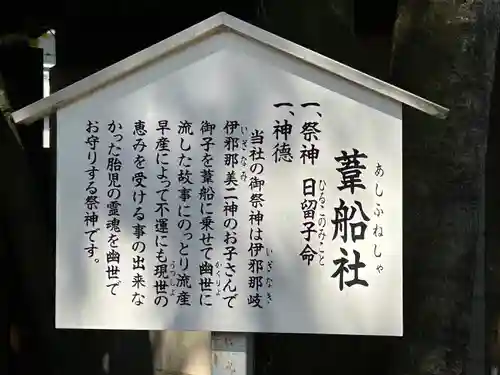 葦船社
あしふねしゃ
一、祭神　日留子命
ひるこのみこと
一、神徳
当社の御祭神は伊邪那岐
いざなき
伊邪那美二神のお子さんで
いざなみ
御子を葦船に乗せて幽世に
かくりよ
流した故事にのっとり流産
早産によって不運にも現世の
うつしよ
恵みを受ける事の出来な
かった胎児の霊魂を幽世で
お守りする祭神です。